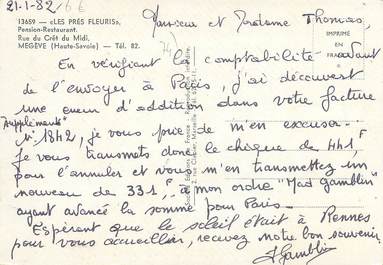 21-1-82
13659 - «LES PRÉS FLEURIS»,
Pension-Restaurant.
Rue du Crêt du Midi.
MEGÈVE (Haute-Savoie) - Tél. 82.
IMPRIMÉ
EN
FRANCE
Monsieur et Madame Thomas,
En vérifiant la comptabilité avant
de l'envoyer à Paris, j'ai découvert
une erreur d'addition dans votre facture
"Supplément"
N° 1842, je vous prie de m'en excuser.
Je vous transmets donc le chèque de 441 F
pour l'annuler et vous m'en transmettez un
nouveau de 331,F à mon ordre "Mad Gamblin"
ayant avancé la somme pour Paris.
Espérant que le soleil était à Rennes
pour vous accueillir, recevez notre bon souvenir
Gamblin